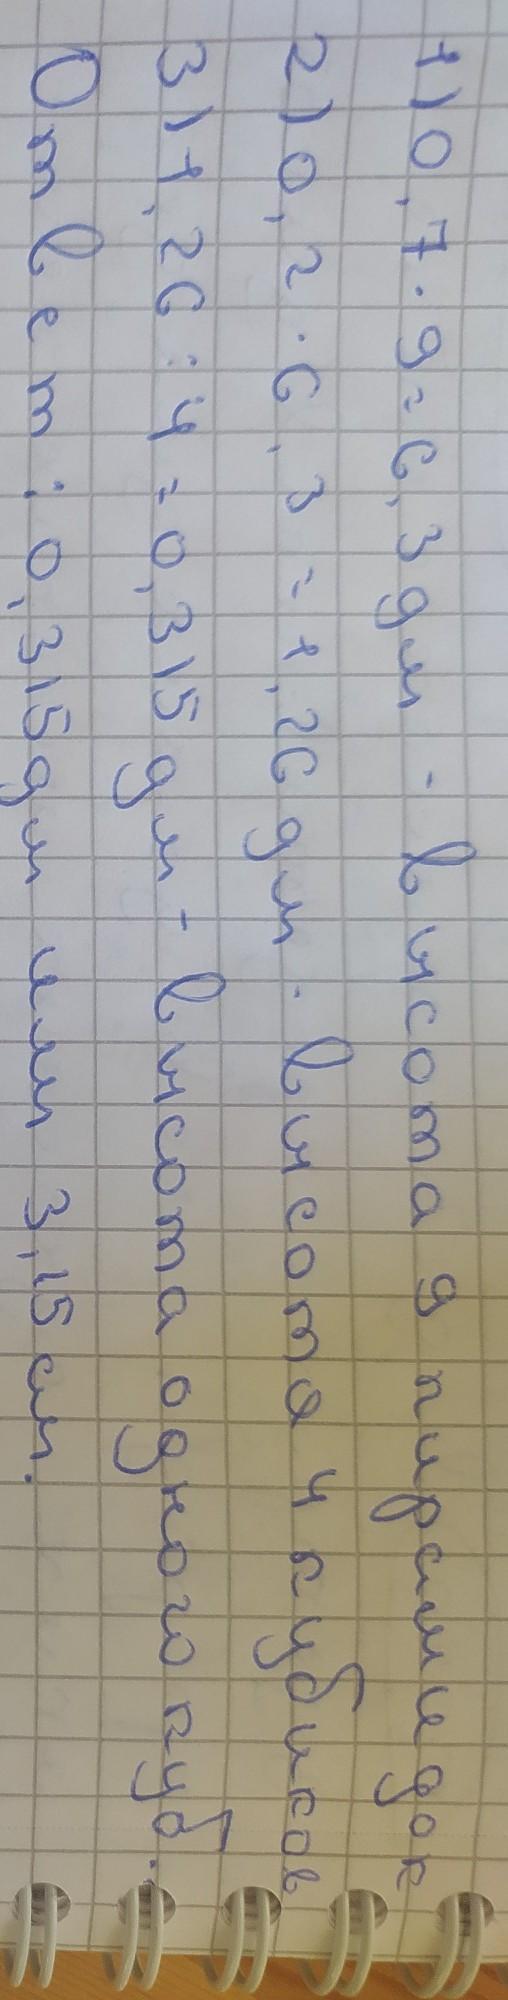 1) 0,7 · 9 = 6,3 дм - висота 9 пирамидок
2) 0,2 · 6,3 = 1,26 дм - висота 4 кубиков
3) 1,26 : 4 = 0,315 дм - висота одного куб.
Ответ: 0,315 дм или 3,15 см.